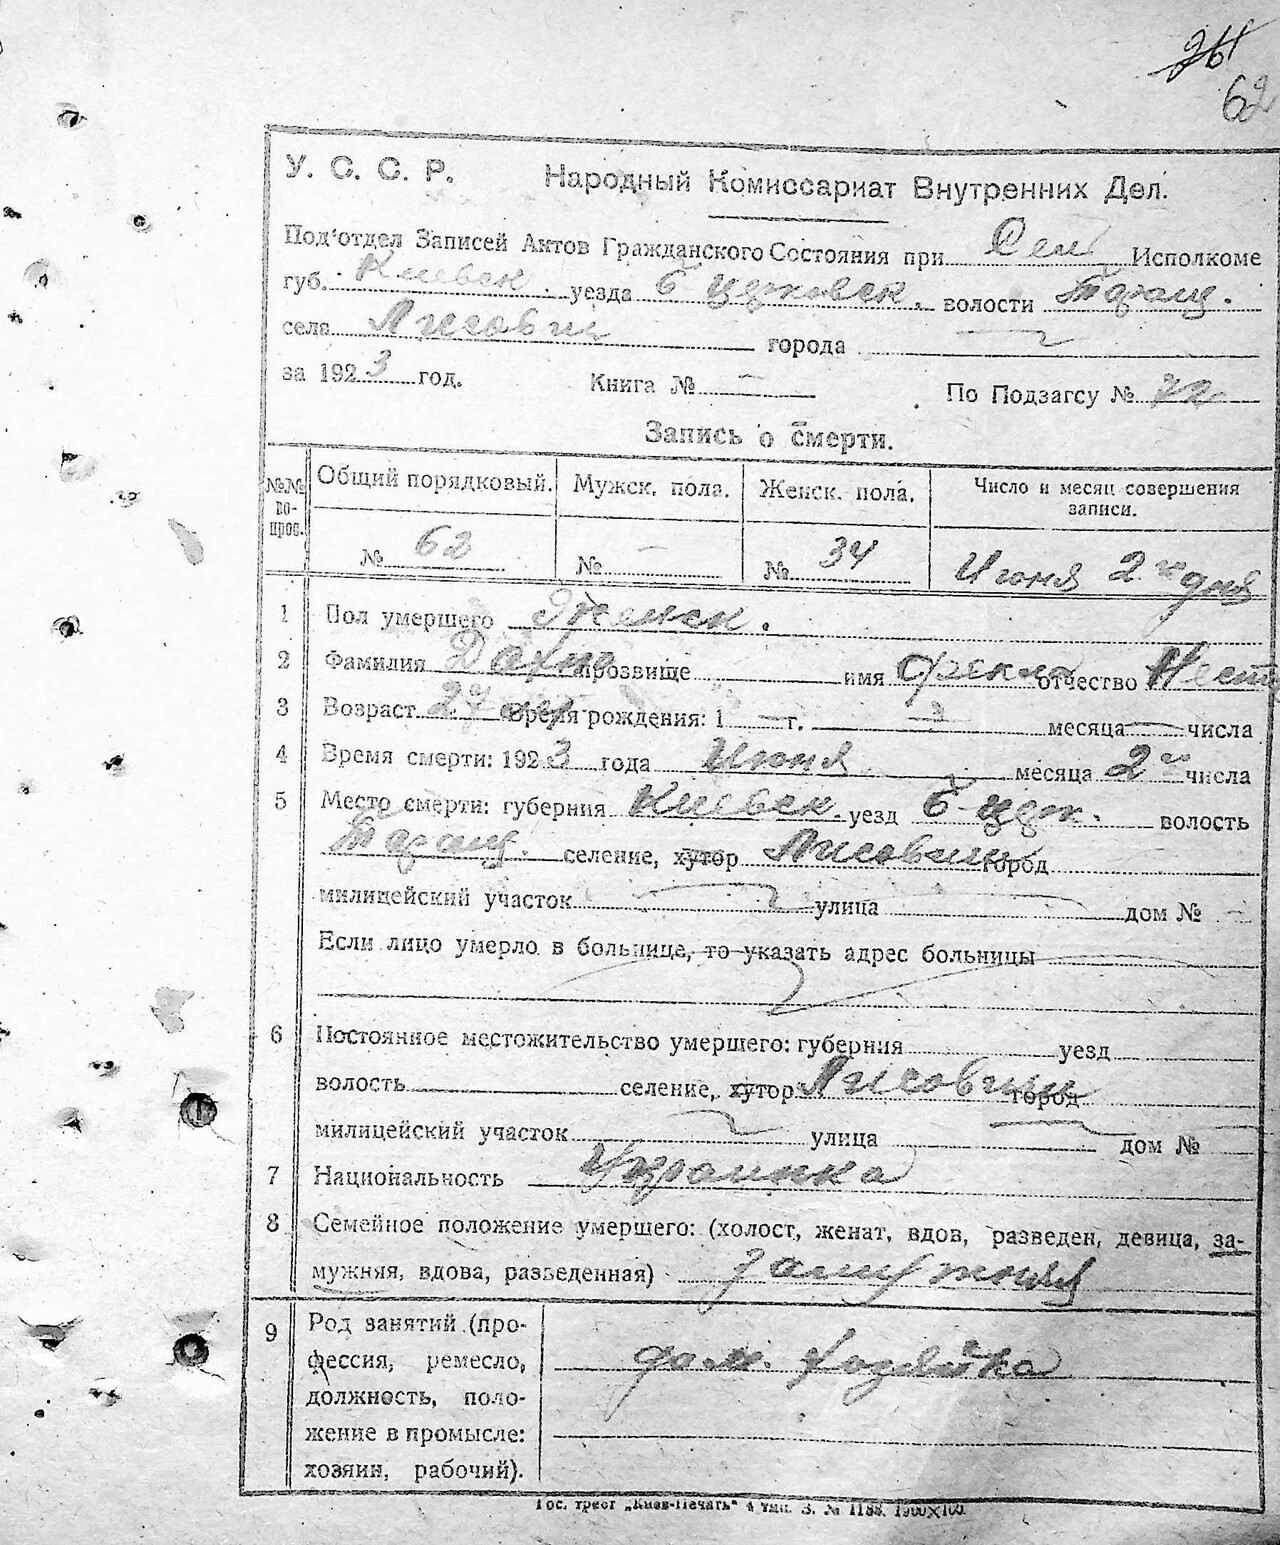 62
У. С. С. Р. Народный Комиссариат Внутренних Дел.
Под'отдел Записей Актов Гражданского Состояния при Сел Исполкоме
губ. Киевск. уезда Б Церковск. волости Таращ.
села Лисович города
за 1923 год. Книга № — По Подзагсу № 72
Запись о смерти.
№№ вопрос. Общий порядковый. Мужск. пола. Женск. пола. Число и месяц совершения записи.
№ 62 № — № 34 Июня 2го дня
1 Пол умершего Женск.
2 Фамилия прозвище имя Фекла отчество Нест
3 Возраст 27 лет Время рождения: 1 — г. месяца — числа
4 Время смерти: 1923 года Июня месяца 2го числа
5 Место смерти: губерния Киевск. уезд Б Церк. волость
Таращ. селение, хутор Лисович город
милицейский участок улица дом № —
Если лицо умерло в больнице, то указать адрес больницы
6 Постоянное местожительство умершего: губерния уезд
волость селение, хутор Лисович город
милицейский участок улица дом №
7 Национальность Украинка
8 Семейное положение умершего: (холост, женат, вдов, разведен, девица, за-
мужняя, вдова, разведенная) замужняя
9 Род занятий (про-
фессия, ремесло, дом. хозяйка
должность, поло-
жение в промысле:
хозяин, рабочий).
Гос. трест „Киев-Печать“ 4 тип. З. № 1188. 1900×100.